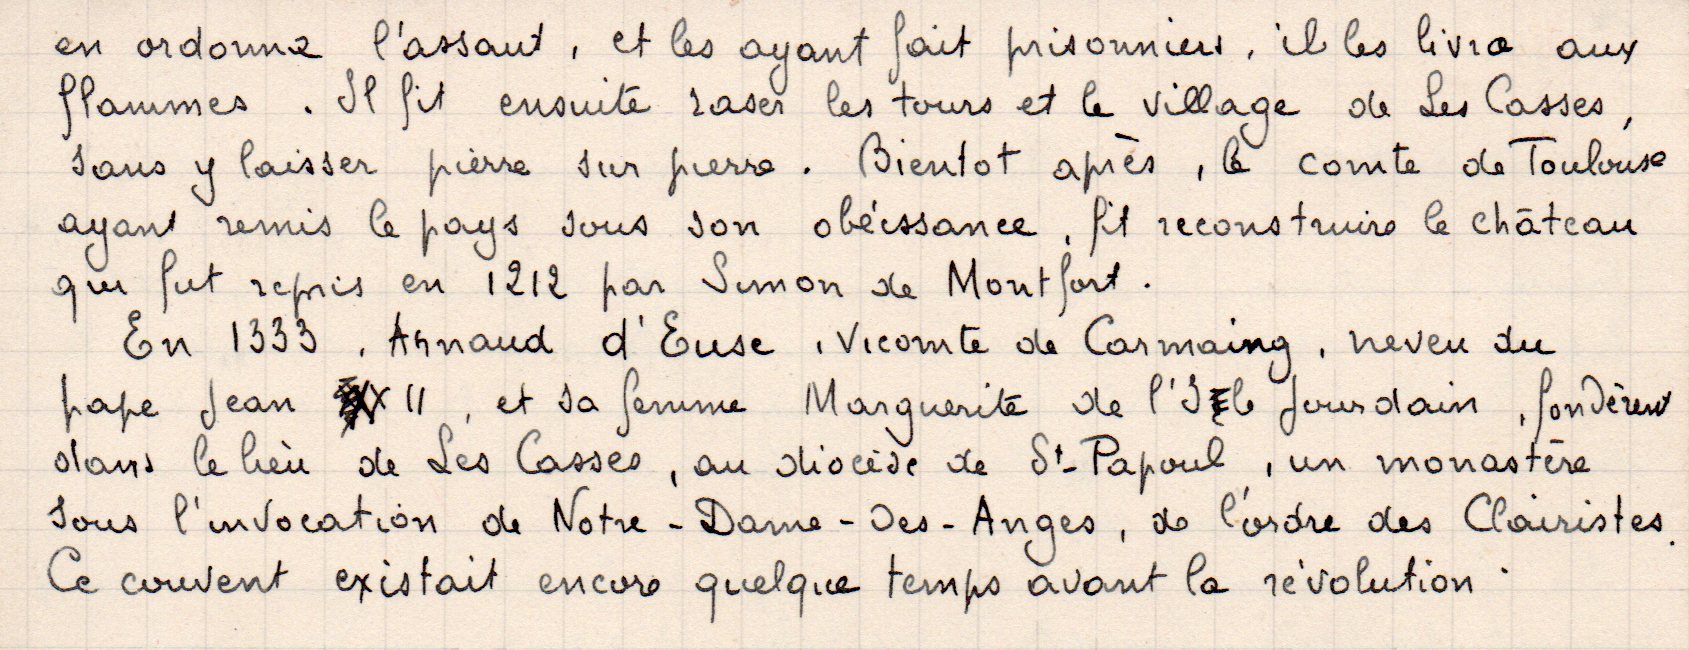 en ordonna l'assaut, et les ayant fait prisonniers, il les livra aux
flammes. Il fit ensuite raser les tours et le village de Les Casses,
sans y laisser pierre sur pierre. Bientot après, le comte de Toulouse
ayant remis le pays sous son obéissance, fit reconstruire le château
qui fut repris en 1212 par Simon de Montfort.
En 1333, Arnaud d'Euse, Vicomte de Carmaing, neveu du
pape Jean XXII, et sa femme Marguerite de l'Isle Jourdain, fondèrent
dans le lieu de Les Casses, au diocèse de St-Papoul, un monastère
sous l'invocation de Notre-Dame-Des-Anges, de l'ordre des Clairistes.
Ce couvent existait encore quelque temps avant la révolution.